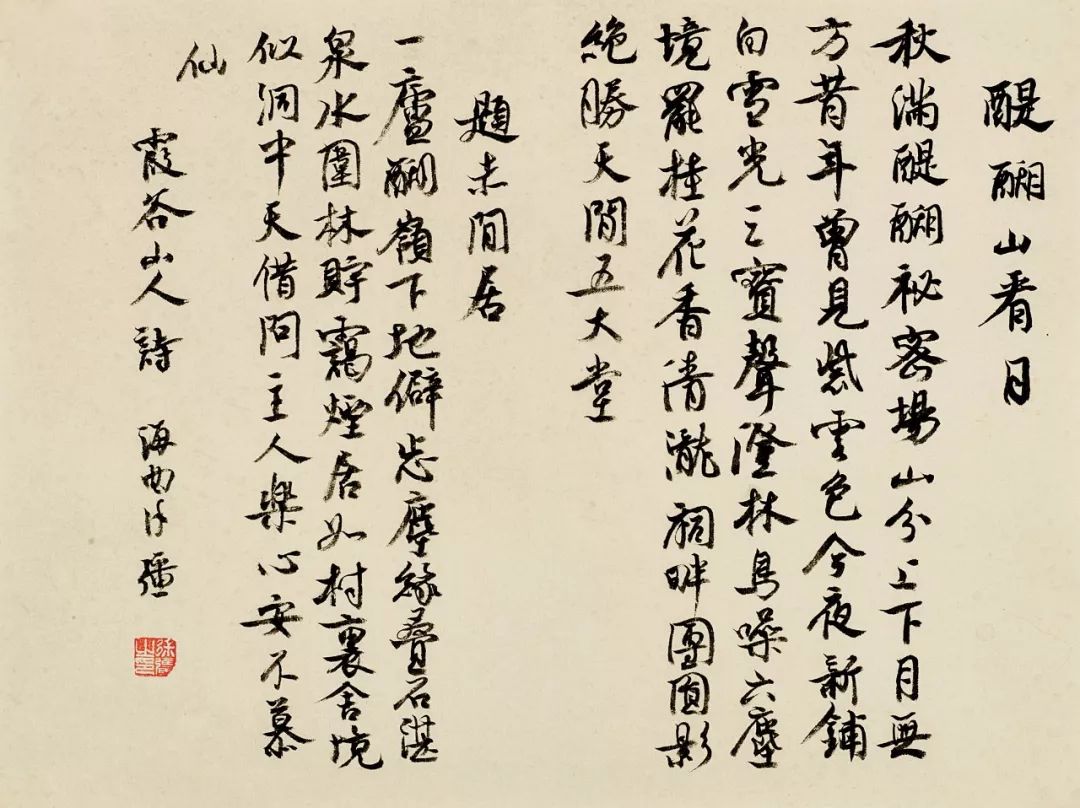 醍醐山看月
秋滿醍醐祕密場山分上下月無
方昔年曾見紫雲色今夜新鋪
白雪光三寶聲澄林鳥噪六塵
境罷桂花香清瀧祠畔團圓影
絕勝天間五大堂
題未間居
一廬醐嶺下地僻忘塵緣疊石湛
泉水圍林貯靄煙居如村裏舍境
似洞中天借問主人樂心安不慕
仙
霞谷山人詩 海曲徐彊